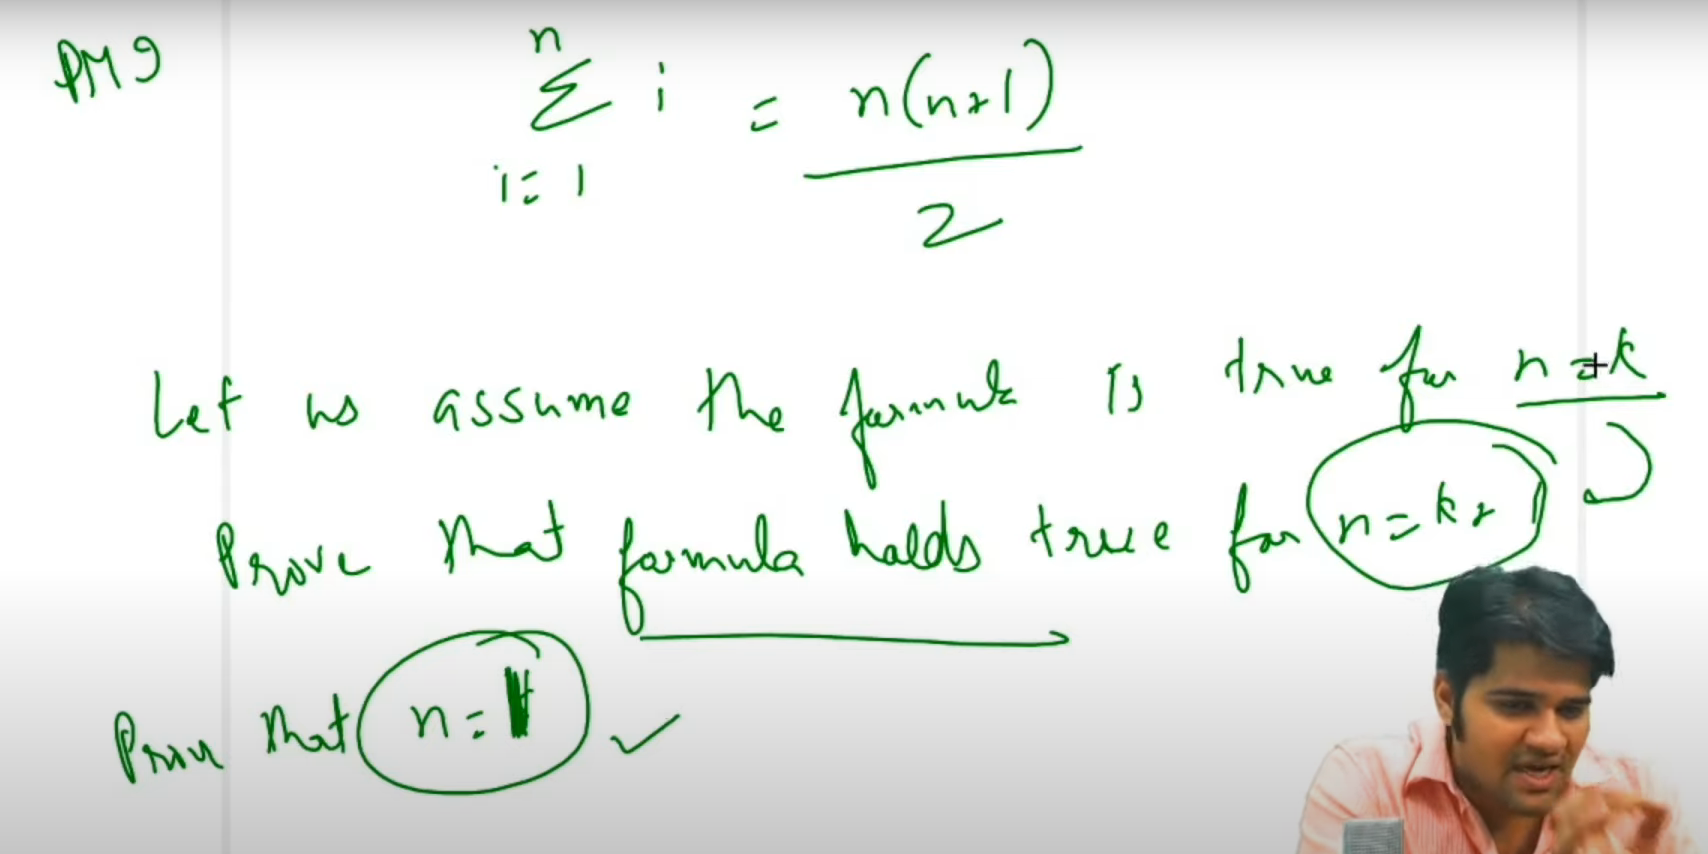 PMI
n
Σ i = n(n+1)
i=1 2
Let us assume the formula is true for n=k
Prove that formula holds true for n=k+1
Prove that n=1